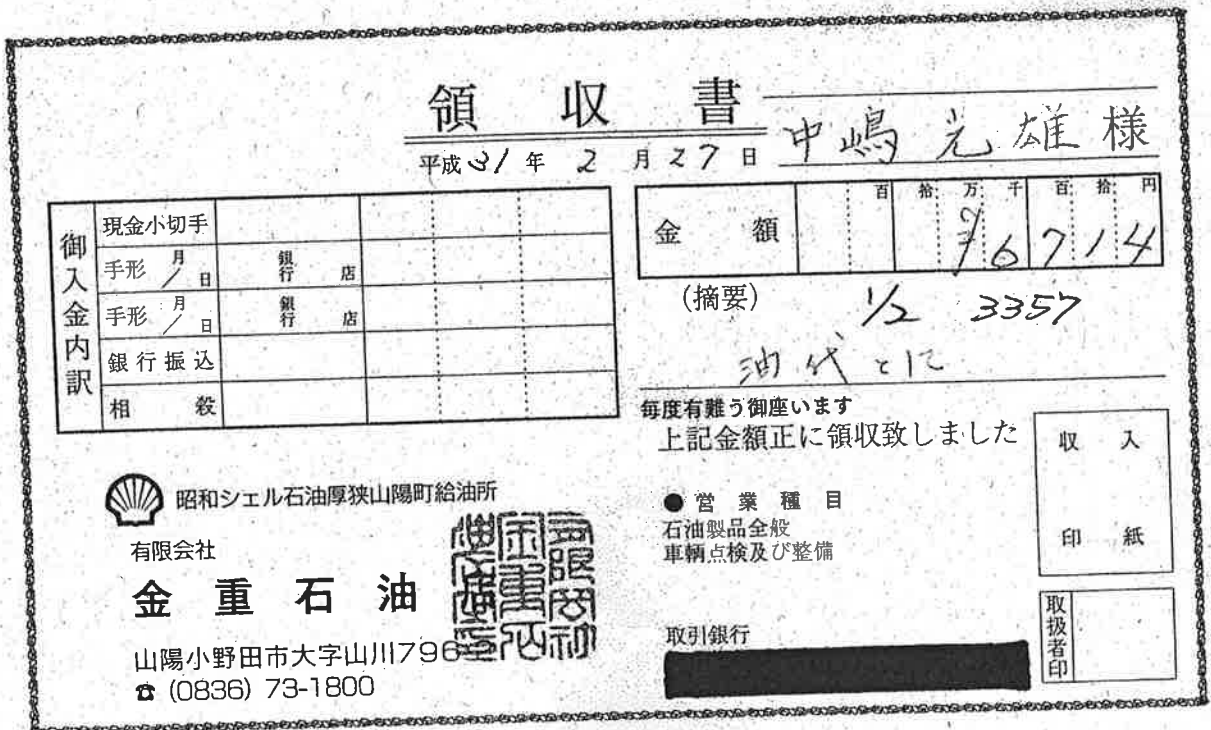 領収書
平成31年2月27日
中嶋光雄様
御入金内訳
現金小切手
手形 月/日 銀行 店
手形 月/日 銀行 店
銀行振込
相殺
金額 百拾万千百拾円
6714
(摘要) 1/2 3357
油代とに
毎度有難う御座います
上記金額正に領収致しました
収入
印紙
昭和シェル石油厚狭山陽町給油所
有限会社
金重石油
山陽小野田市大字山川796
☎(0836)73-1800
●営業種目
石油製品全般
車輌点検及び整備
取引銀行
取扱者印